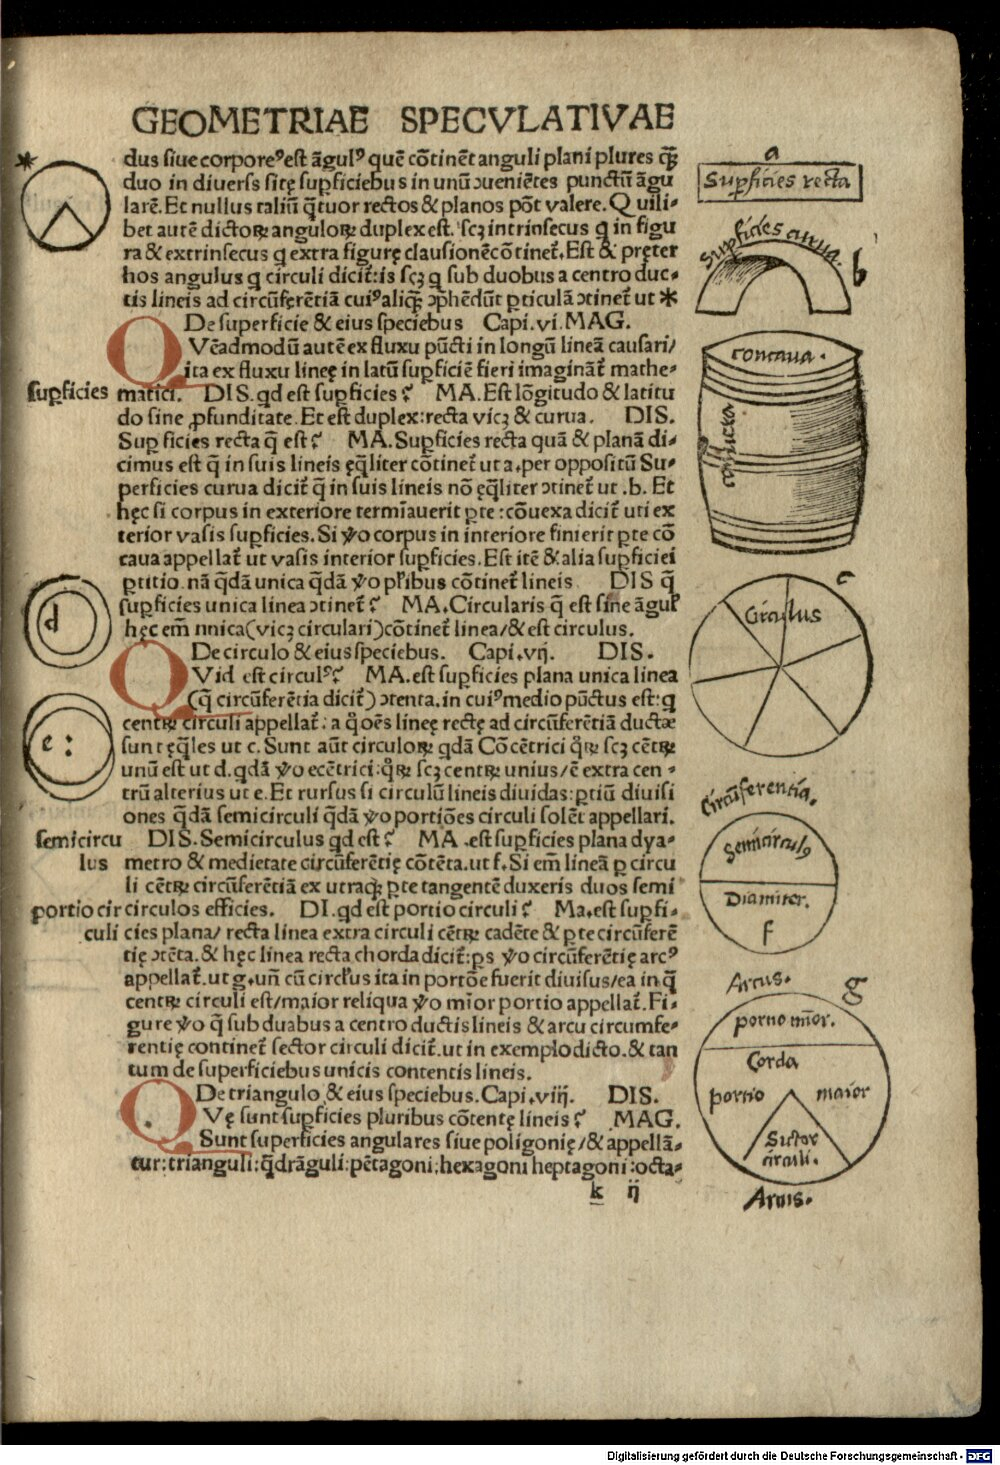 GEOMETRIAE SPECVLATIVAE
dus siue corpore⁹ est ãgul⁹ quẽ cõtinẽt anguli plani plures ꝙ̃
duo in diuerss sitę suꝑficiebus in unũ ↄueniẽtes punctũ ãgu
larẽ. Et nullus taliũ q̃tuor rectos & planos põt valere. Quili⸗
bet autẽ dictoꝝ anguloꝝ duplex est. scꝫ intrinsecus q in figu
ra & extrinsecus q extra figurę clausionẽ cõtinet᷑. Est & pręter
hos angulus q circuli dicit᷑: is scꝫ q sub duobus a centro duc⸗
tis lineis ad circũferẽtiã cui⁹ aliqꝫ ↄp̃hẽdũt ꝑticulã ↄtinet᷑ ut *
De superficie & eius speciebus Capi. vi. MAG.
QVẽadmodũ autẽ ex fluxu pũcti in longũ lineã causari/
ita ex fluxu lineę in latũ suꝑficiẽ fieri imaginãt᷑ mathe⸗
suꝑficies
matici. DIS. qd est suꝑficies? MA. Est lõgitudo & latitu
do sine ꝓfunditate. Et est duplex: recta vicꝫ & curua. DIS.
Suꝑficies recta q̃ est? MA. Suꝑficies recta quã & planã di⸗
cimus est q̃ in suis lineis ęq̃liter cõtinet᷑ ut a. per oppositũ Su⸗
perficies curua dicit᷑ q̃ in suis lineis nõ ęq̃liter ↄtinet᷑ ut .b. Et
hęc si corpus in exteriore termiauerit ꝑte: cõuexa dicit᷑ uti ex
terior vasis suꝑficies. Si ỹo corpus in interiore finierit ꝑte cõ
caua appellat᷑ ut vasis interior suꝑficies. Est itẽ & alia suꝑficiei
ꝑtitio. nã q̃dã unica q̃dã ỹo pl̃ribus cõtinet᷑ lineis DIS q̃
suꝑficies unica linea ↄtinet᷑? MA. Circularis q̃ est sine ãgul̃
hęc em̃ nnica (vicꝫ circulari) cõtinet᷑ linea/ & est circulus.
De circulo & eius speciebus. Capi. vij. DIS.
QVid est circul⁹? MA. est suꝑficies plana unica linea
(q̃ circũferẽtia dicit᷑) ↄtenta. in cui⁹ medio pũctus est: q
centꝝ circuli appellat᷑: a q̊ oẽs lineę rectę ad circũferẽtiã ductæ
sunt ęq̃les ut c. Sunt aũt circuloꝝ q̃dã Cõcẽtrici q̊ꝝ scꝫ cẽtꝝ
unũ est ut d. q̃dã ỹo ecẽtrici: q̊ꝝ scꝫ centꝝ unius/ẽ extra cen⸗
trũ alterius ut e. Et rursus si circulũ lineis diuidas: ꝑtiũ diuisi
ones q̃dã semicirculi q̃dã ỹo portiões circuli solẽt appellari.
semicircu
lus
DIS. Semicirculus qd est? MA .est suꝑficies plana dya⸗
metro & medietate circũferẽtię cõtẽta. ut f. Si em̃ lineã ꝑ circu
li cẽtꝝ circũferẽtiã ex utraqꝫ ꝑte tangentẽ duxeris duos semi
portio cir
culi
circulos efficies. DI. qd est portio circuli? Ma. est suꝑfi⸗
cies plana/ recta linea extra circuli cẽtꝝ cadẽte & ꝑte circũferẽ
tię ↄtẽta. & hęc linea recta chorda dicit᷑: ꝑs ỹo circũferẽtię arc⁹
appellat᷑. ut g. uñ cũ circl̃us ita in portõe fuerit diuisus/ ea in q̃
centꝝ circuli est/ maior reliqua ỹo mĩor portio appellat᷑. Fi⸗
gure ỹo q̃ sub duabus a centro ductis lineis & arcu circumfe⸗
rentię continet᷑ sector circuli dicit᷑. ut in exemplo dicto. & tan
tum de superficiebus unicis contentis lineis.
De triangulo & eius speciebus. Capi. viij. DIS.
QVę sunt suꝑficies pluribus cõtentę lineis? MAG.
Sunt superficies angulares siue poligonię/ & appellã⸗
tur: trianguli: q̃drãguli: pẽtagoni: hexagoni heptagoni: octa⸗
k ij
*
d
e :
a
Suꝑficies recta
Suꝑficies curua.
b
concaua.
conuexa
c
Circulus
Circũferentia.
Semicirculꝰ
Diamiter.
f
Arcus.
g
portio mĩor.
Corda
portio maior
Sector
circuli.
Arcus.
Digitalisierung gefördert durch die Deutsche Forschungsgemeinschaft - DFG